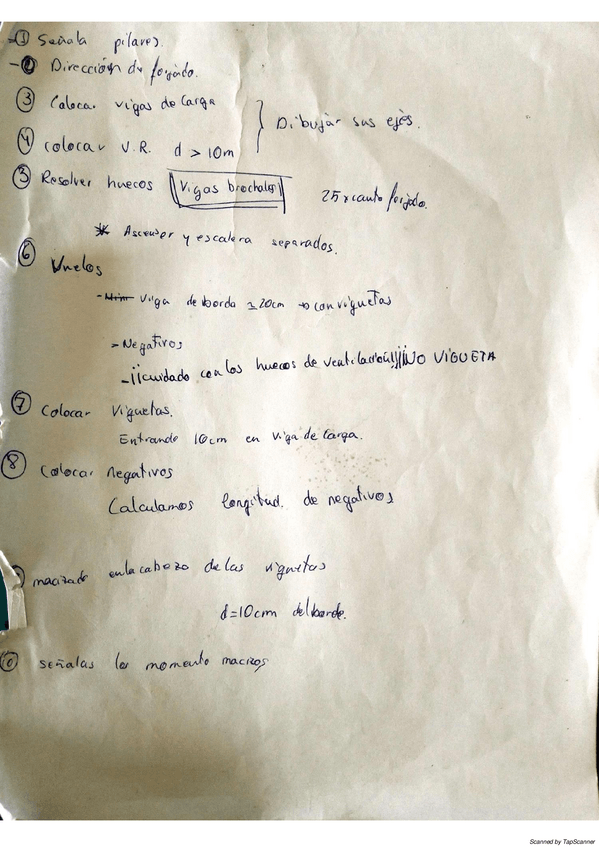 ① Señala pilares.
② Dirección de forjado.
③ Colocar vigas de carga
Dibujar sus ejes.
④ colocar V.R. d > 10m
⑤ Resolver huecos Vigas brochales 25 x canto forjado.
* Ascensor y escalera separados.
⑥ Vuelos
- Viga de borda ≥ 20cm → con viguetas
- Negativos
- ¡¡cuidado con los huecos de ventilación!! ¡¡NO VIGUETA
⑦ Colocar Viguetas.
Entrando 10cm en viga de carga.
⑧ Colocar negativos
Calculamos longitud. de negativos
macizado en la cabeza de las viguetas
d=10cm del borde.
señalas los momento macizos
Scanned by TapScanner